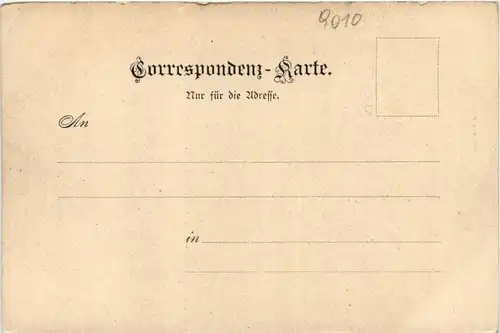 9010
Correspondenz-Karte.
Nur für die Adresse.
An
in